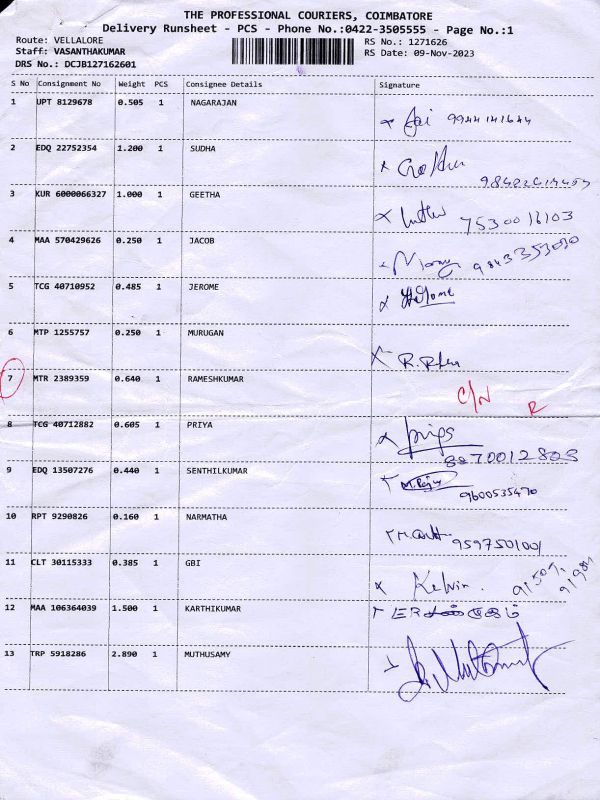 THE PROFESSIONAL COURIERS, COIMBATORE
Delivery Runsheet - PCS - Phone No.:0422-3505555 - Page No.:1
Route: VELLALORE RS No.: 1271626
Staff: VASANTHAKUMAR RS Date: 09-Nov-2023
DRS No.: DCJB127162601
S No Consignment No Weight PCS Consignee Details Signature
1 UPT 8129678 0.505 1 NAGARAJAN x Jai 9944141644
2 EDQ 22752354 1.200 1 SUDHA x
3 KUR 6000066327 1.000 1 GEETHA x 7530016103
4 MAA 570429626 0.250 1 JACOB 9843353030
5 TCG 40710952 0.485 1 JEROME x Jerome
6 MTP 1255757 0.250 1 MURUGAN x
7 MTR 2389359 0.640 1 RAMESHKUMAR C/N R
8 TCG 40712882 0.605 1 PRIYA x 8870012803
9 EDQ 13507276 0.440 1 SENTHILKUMAR M.Raju 9600535470
10 RPT 9290826 0.160 1 NARMATHA 9597501001
11 CLT 30115333 0.385 1 GBI x Kelvin.
12 MAA 106364039 1.500 1 KARTHIKUMAR
13 TRP 5918286 2.890 1 MUTHUSAMY